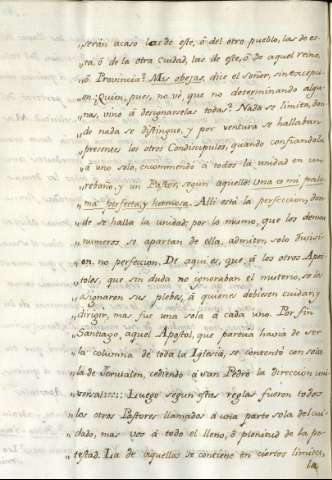 "serán acaso las de este, ó del otro pueblo, las de es-
"ta, ó de la otra Cuidad, las de este, ó de aquel reino,
"ó Provincia? Mis obejas, dice el señor, sin excepci-
"on. ¿Quien, pues, no vé, que no determinando algu-
"nas, vino á designarselas todas? Nada se limita, don-
"de nada se distingue, y por ventura se hallaban
"presentes los otros Condiscipulos, quando confiandola
"á uno solo, encomendó á todos la unidad en un
"rebaño, y un Pastor, segun aquello: Una es mi palo-
"ma, perfecta, y hermosa. Alli está la perfeccion, don-
"de se halla la unidad; por lo mismo, que los demas
"numeros se apartan de ella, admiten solo Divisi-
"on, no perfeccion. De aqui es, que á los otros Apos-
"toles, que sin duda no ignoraban el misterio, se les
"asignaron sus plebes, á quienes debiesen cuidar, y
"dirigir, mas fue una sola á cada uno. Por fin
"Santiago, aquel Apostol, que parecia havia de ser
"la columna de toda la Iglesia, se contentó con sola
"la de Jerusalen, cediendo á San Pedro la Direccion uni-
"versal: Luego segun estas reglas fueron todos
"los otros Pastores llamados á una parte sola del cui-
"dado, mas vos á todo el lleno, ó plenitud de la po-
"testad. La de aquellos se contiene en ciertos limites,
la